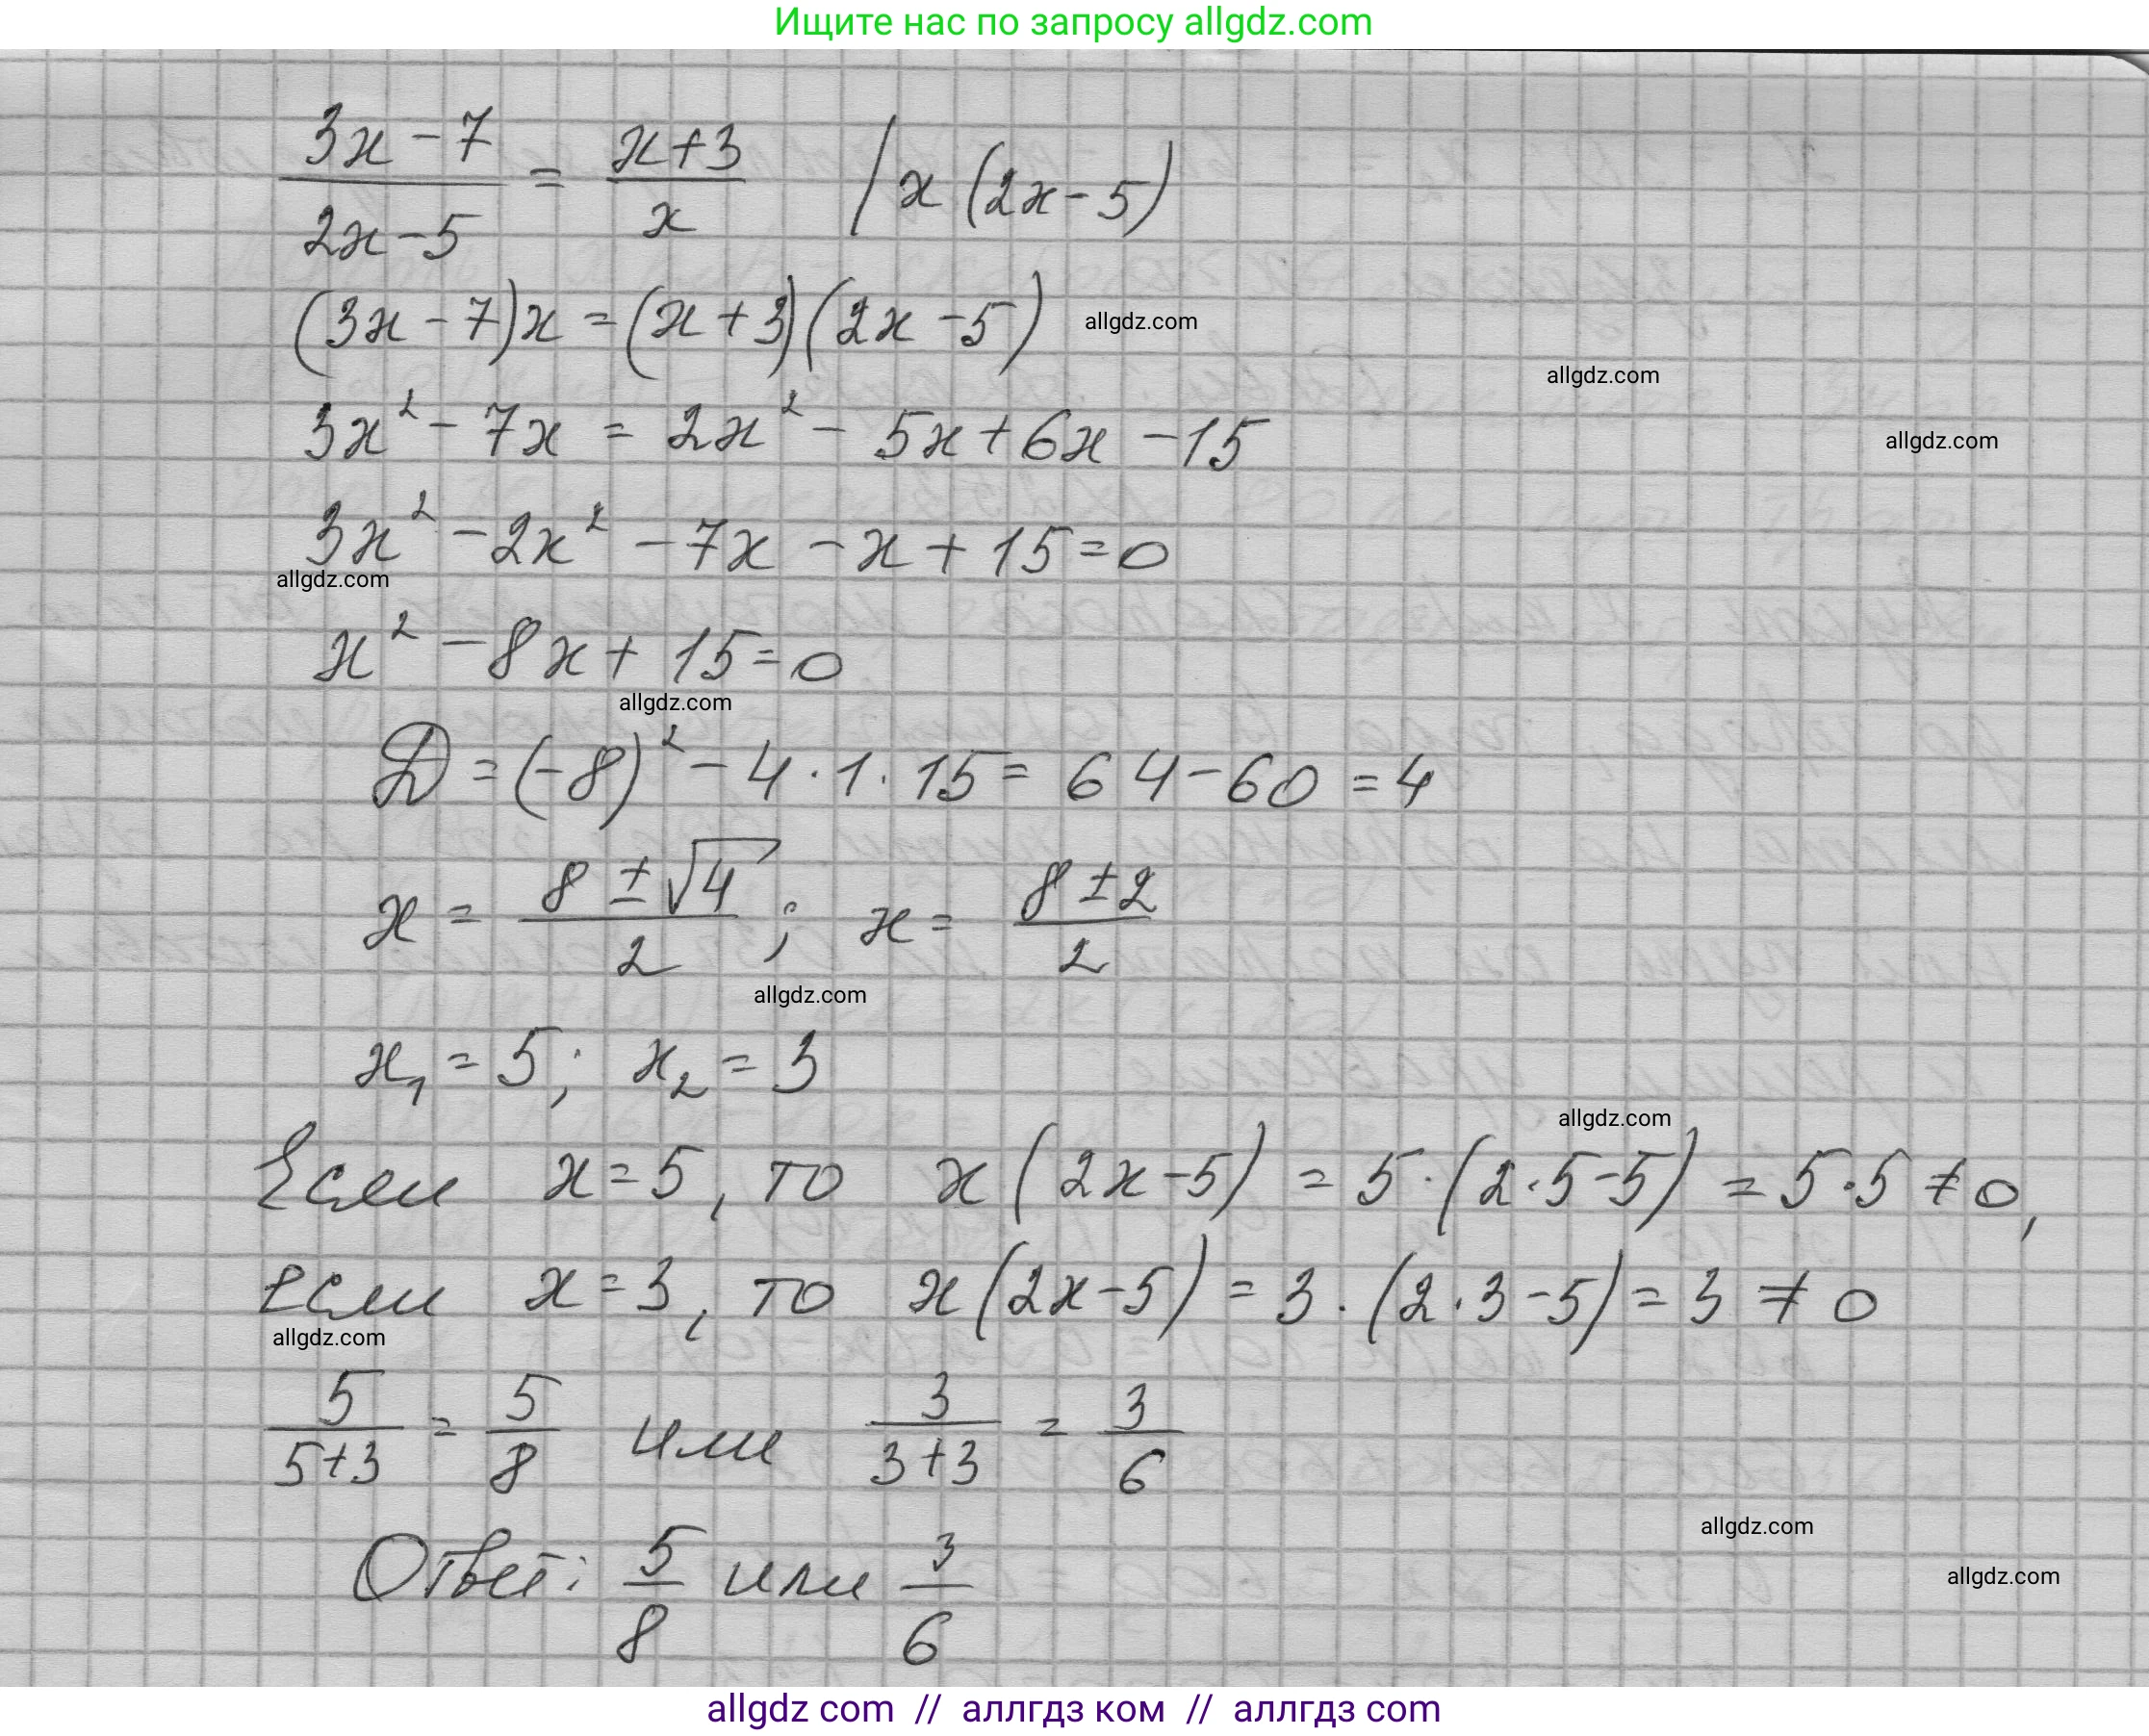 Ищите нас по запросу allgdz.com
(3x-7)/(2x-5) = (x+3)/x | x(2x-5)
(3x-7)x=(x+3)(2x-5) allgdz.com
allgdz.com
3x² - 7x = 2x² - 5x+6x -15 allgdz.com
3x² -2x² -7x -x+15=0
allgdz.com
x² -8x+15=0
allgdz.com
D=(-8)² -4·1·15= 64-60=4
x = (8±√4)/2; x= (8±2)/2
allgdz.com
x₁=5; x₂=3
allgdz.com
Если x=5, то x(2x-5) = 5·(2·5-5) = 5·5≠0,
если x=3, то x(2x-5) = 3·(2·3-5)=3≠0
allgdz.com
5/(5+3) = 5/8 или 3/(3+3) = 3/6
allgdz.com
Ответ: 5/8 или 3/6 allgdz.com
allgdz com // аллгдз ком // аллгдз com